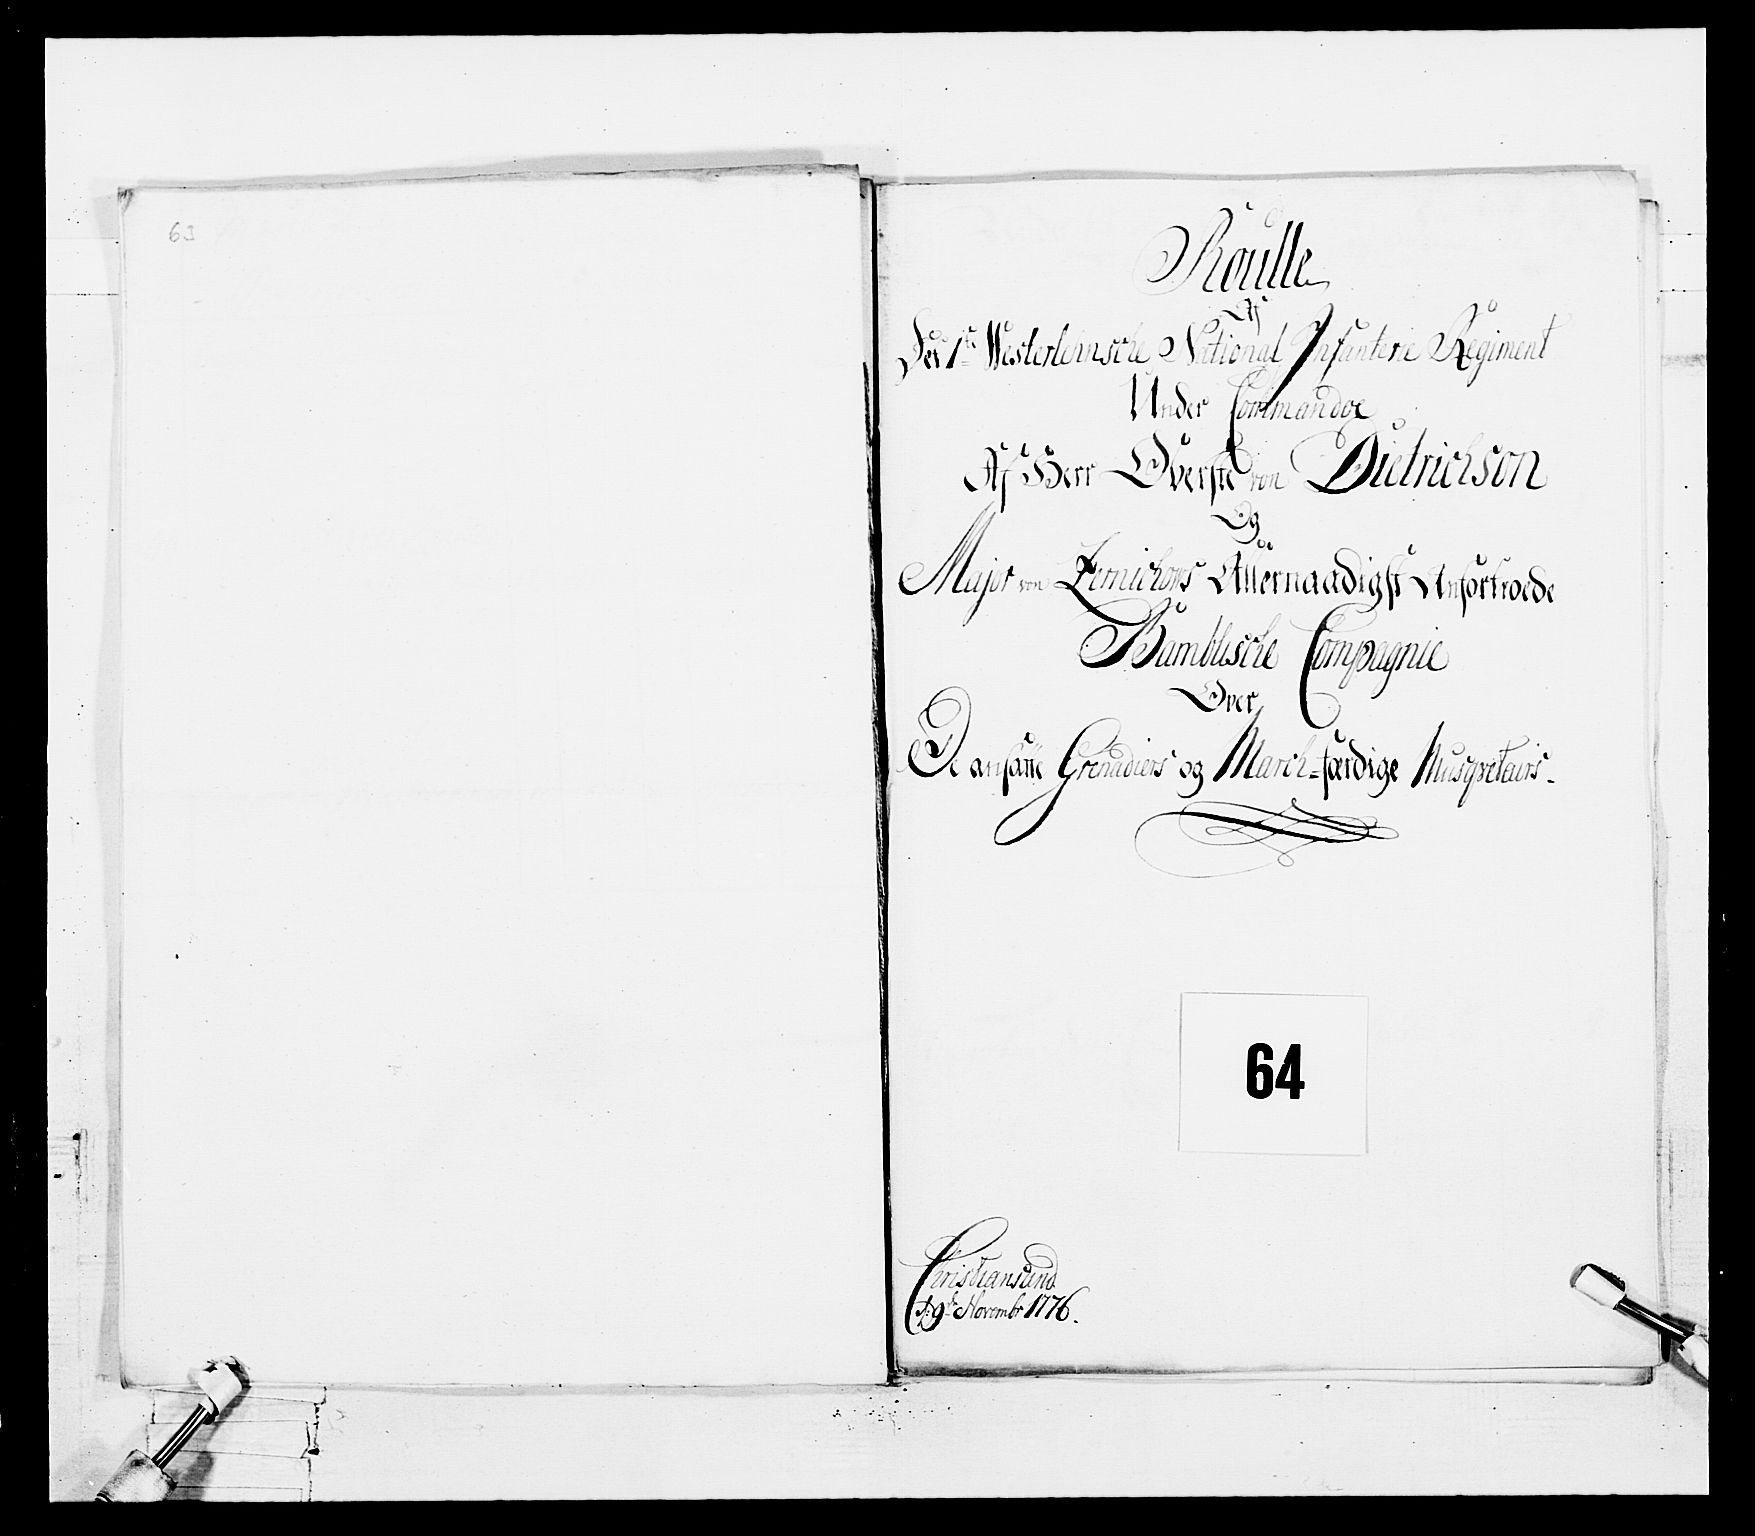 63
Roulle
Af
Det 1ste Westerlehnsche National Infanterie Regiment
Under Commandoe
Af Herr Øverste von Dietrichson
Og
Major von Zernichows Allernaadigst Anfortroede
Bamblesche Compagnie
Over
De ansatte Grenadiers og March-færdige Musqvetairs.
64
Christiansund
d: 9de Novembr 1776.